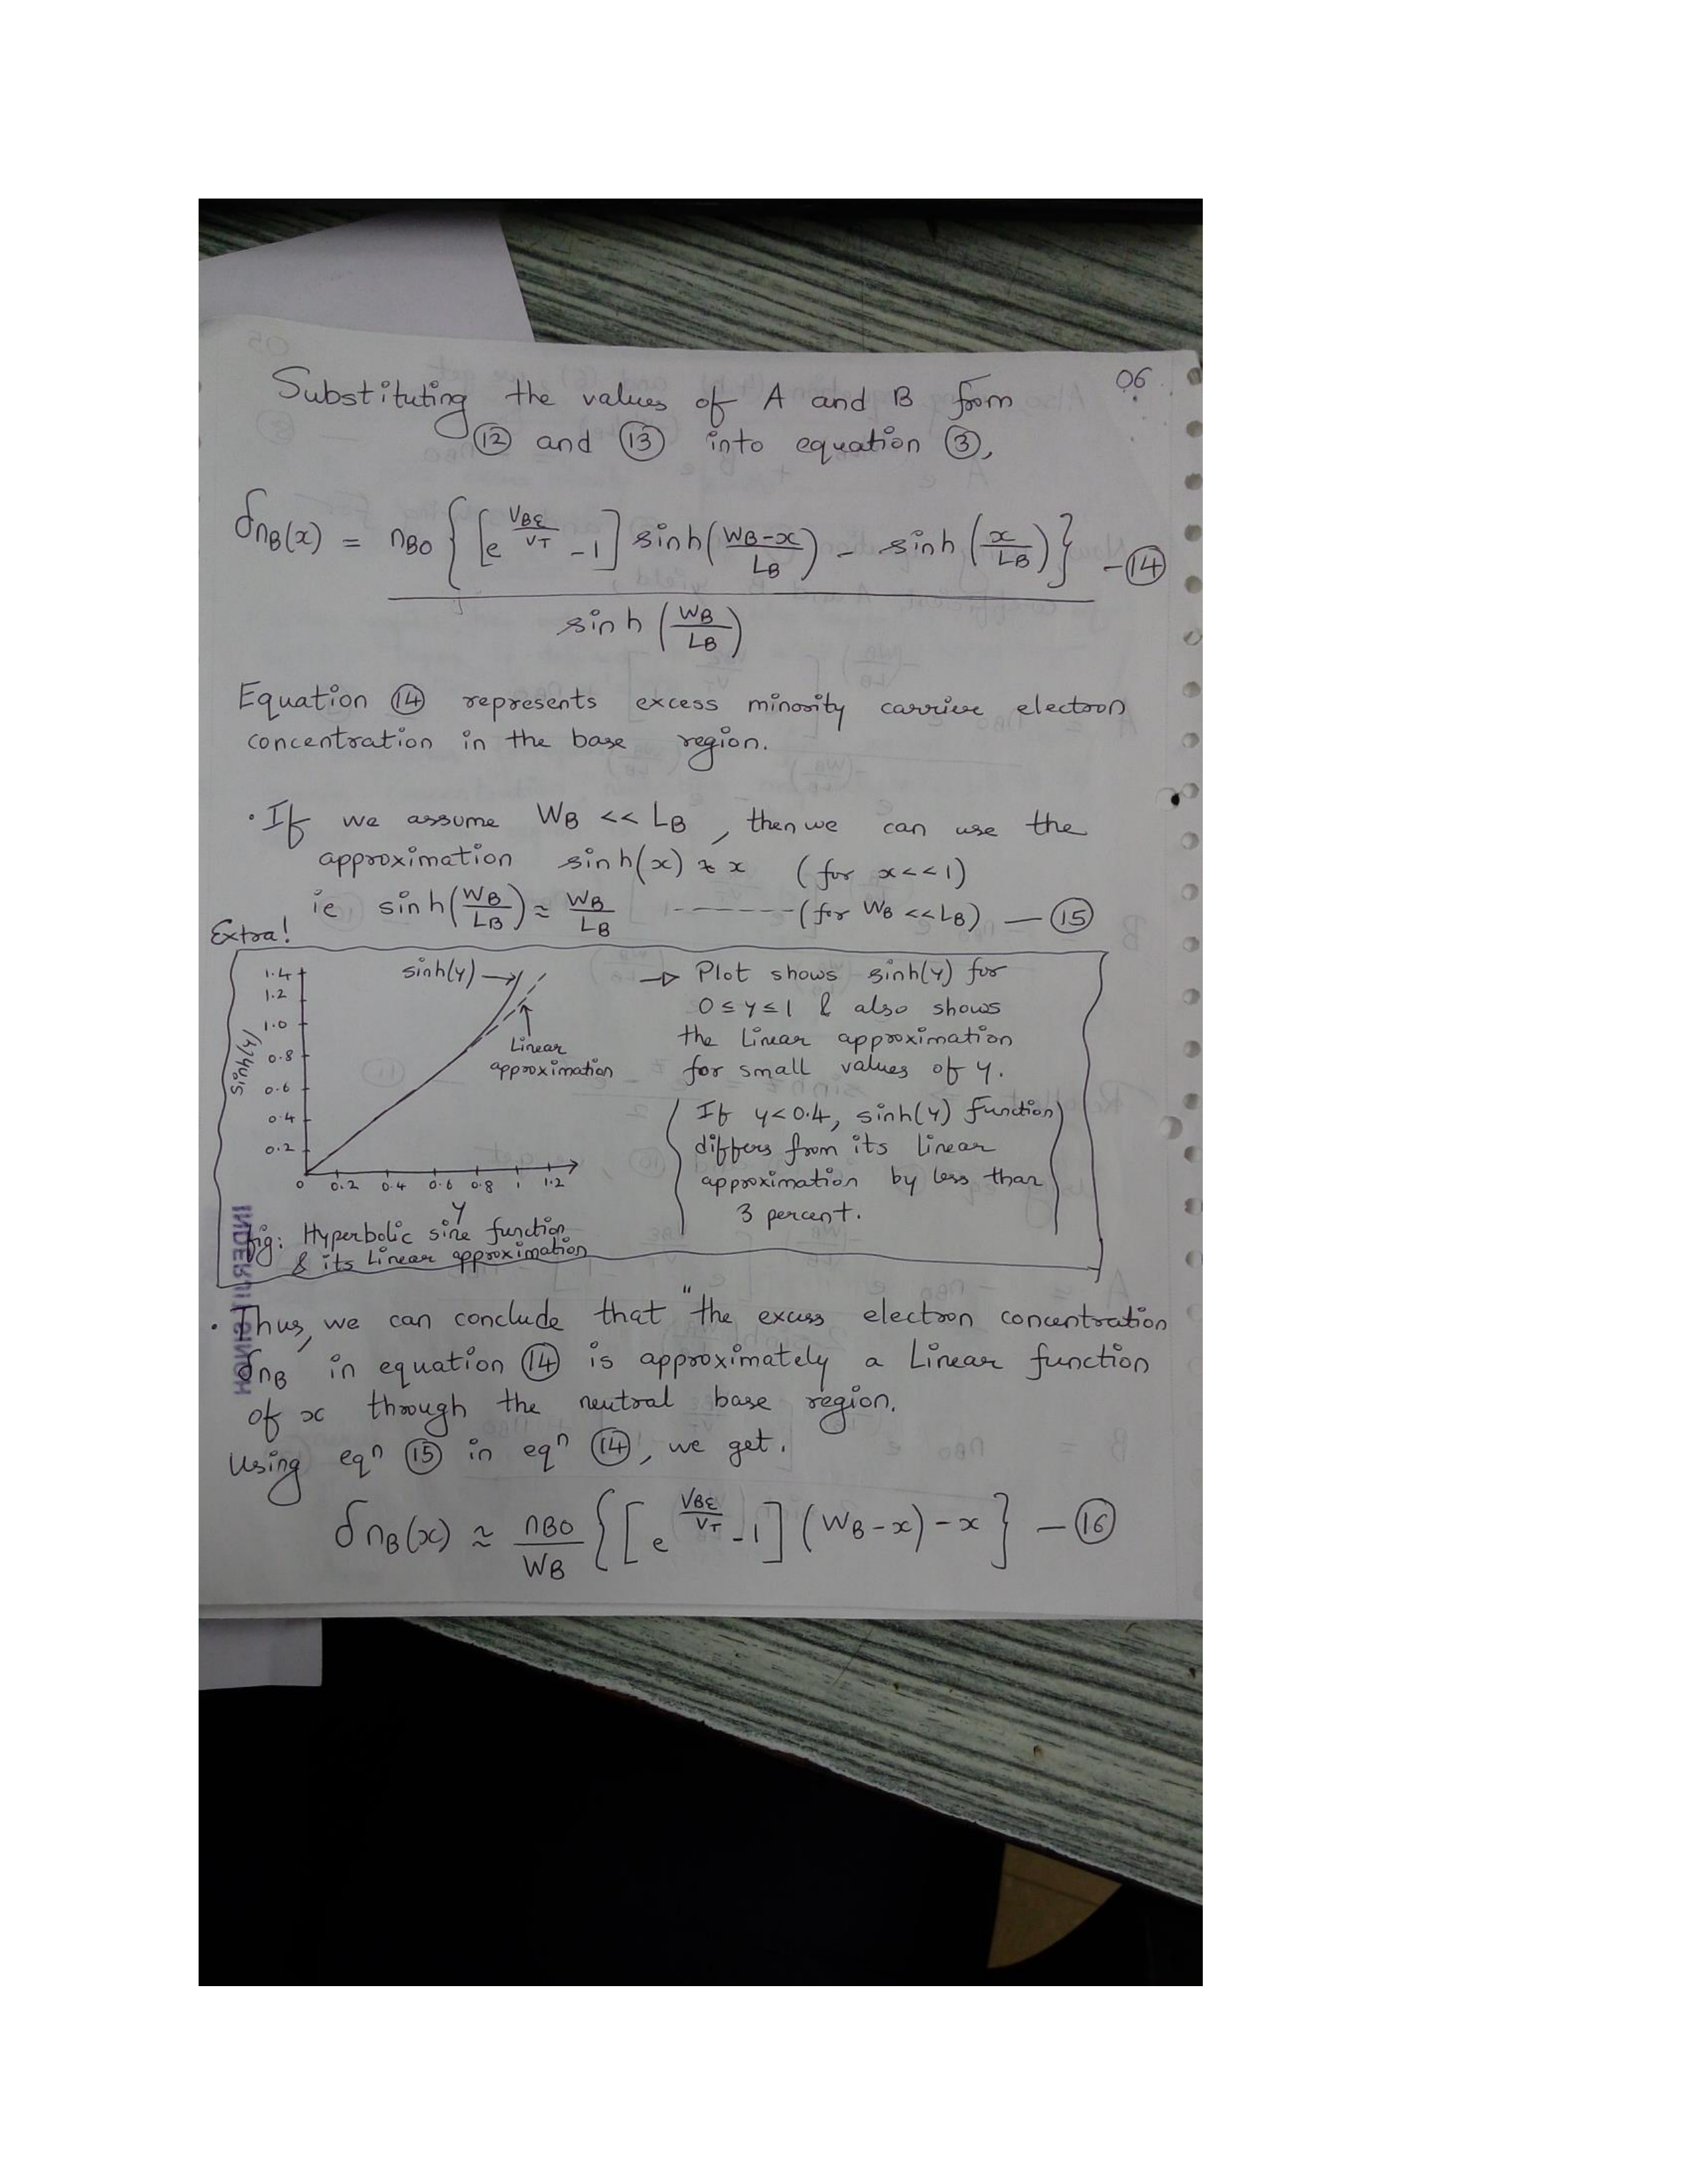 06
Substituting the values of A and B from
⑫ and ⑬ into equation ③,
δnB(x) = nB0 { [ e^(VBE/VT) -1 ] sinh( (WB-x)/LB ) - sinh( x/LB ) } - ⑭
sinh ( WB/LB )
Equation ⑭ represents excess minority carrier electron
concentration in the base region.
• If we assume WB << LB , then we can use the
approximation sinh(x) ≈ x ( for x<<1)
ie sinh( WB/LB ) ≈ WB/LB ------- (for WB <<LB) — ⑮
Extra!
sinh(y) →
1.4
1.2
1.0
0.8
0.6
0.4
0.2
sinh(y)
Linear
approximation
0 0.2 0.4 0.6 0.8 1 1.2
y
fig: Hyperbolic sine function
& its Linear approximation
→ Plot shows sinh(y) for
0≤y≤1 & also shows
the Linear approximation
for small values of y.
If y<0.4, sinh(y) function
differs from its linear
approximation by less than
3 percent.
• Thus, we can conclude that "the excess electron concentration
δnB in equation ⑭ is approximately a Linear function
of x through the neutral base region.
Using eqn ⑮ in eqn ⑭, we get.
δnB(x) ≈ nB0/WB { [ e^(VBE/VT) -1 ] (WB-x) -x } — ⑯